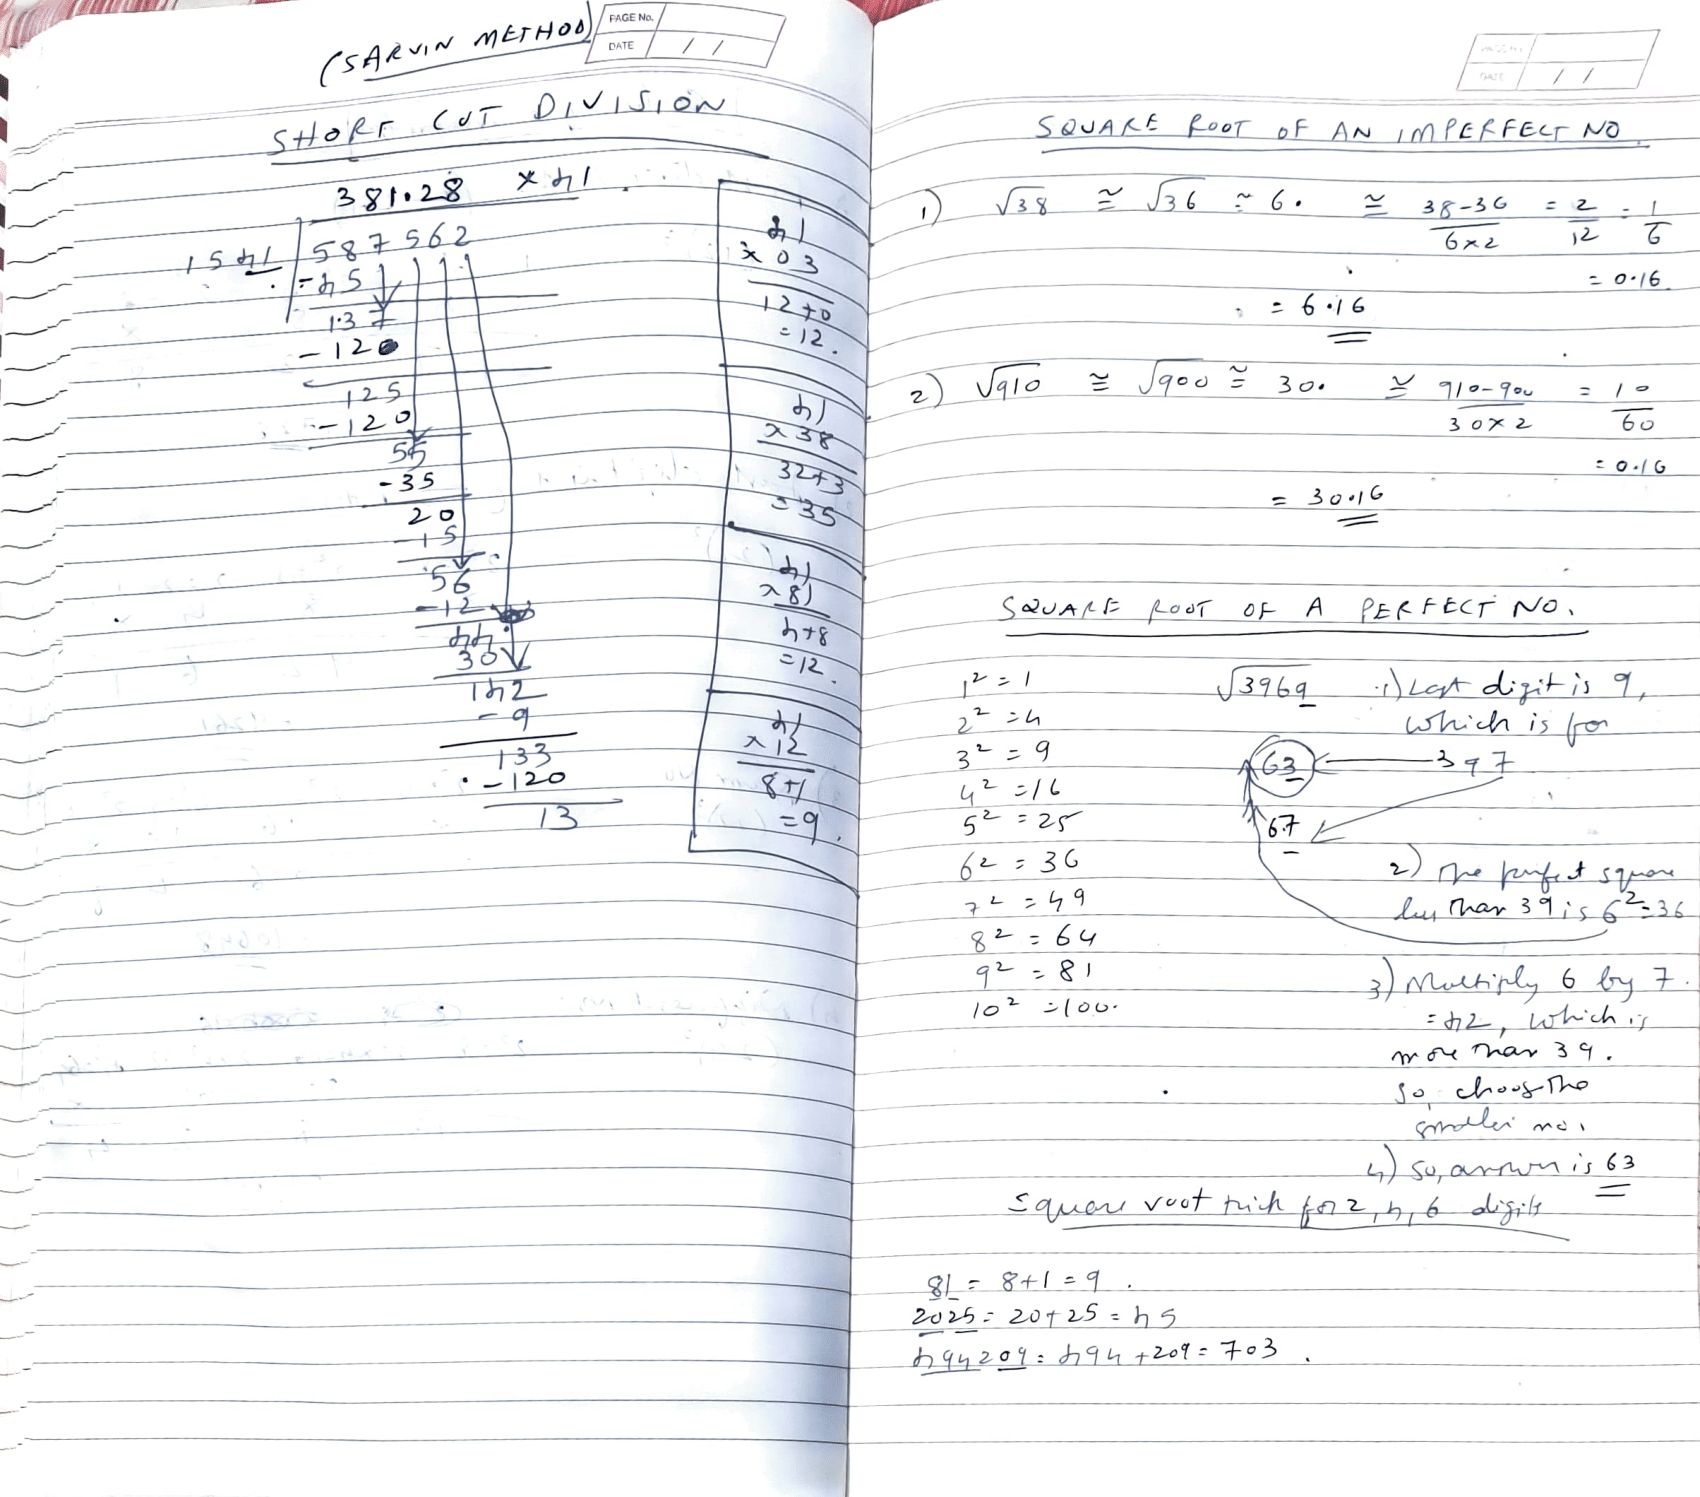 (SARVIN METHOD)
PAGE No.
DATE / /
SHORT CUT DIVISION
381.28 x 41
1541 587562
-45
137
-120
125
-120
55
-35
20
-15
56
-12
44
30
142
-9
133
-120
13
41
x 03
12+0
=12.
41
x 38
32+3
=35
41
x 81
4+8
=12.
41
x 12
8+1
=9.
DATE / /
SQUARE ROOT OF AN IMPERFECT NO.
1) √38 ≅ √36 ≅ 6. ≅ 38-36 / 6x2 = 2/12 = 1/6
= 0.16
= 6.16
2) √910 ≅ √900 ≅ 30. ≅ 910-900 / 30x2 = 10/60
= 0.16
= 30.16
SQUARE ROOT OF A PERFECT NO.
1² = 1
2² = 4
3² = 9
4² = 16
5² = 25
6² = 36
7² = 49
8² = 64
9² = 81
10² = 100.
√3969 1) Last digit is 9,
which is for
63 ← 3 9 7
67
2) The perfect square
less than 39 is 6² = 36
3) Multiply 6 by 7.
= 42, which is
more than 39.
So, choose the
smaller no.
4) So, answer is 63
Square root trick for 2, 4, 6 digits
81 = 8+1 = 9.
2025 = 20+25 = 45
494209 = 494+209 = 703.